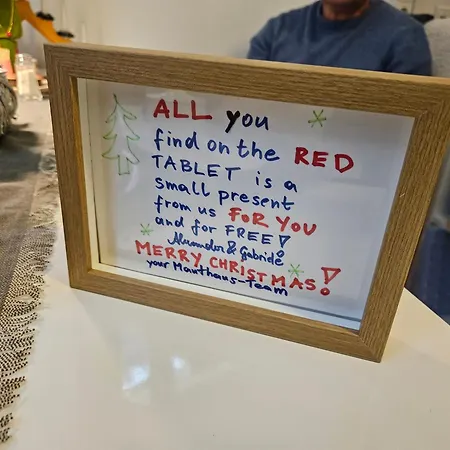 ALL you
find on the RED
TABLET is a
small present
from us FOR YOU
and for FREE!
Alexander & Gabriele
MERRY CHRISTMAS!
your Mauthaus-Team